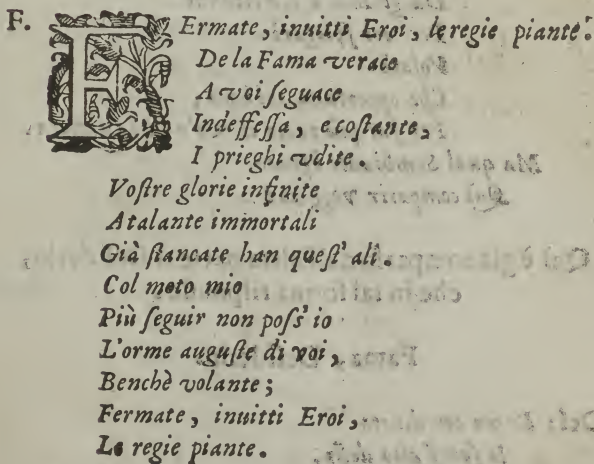 F. FErmate, inuitti Eroi, le regie piante.
De la Fama verace
A voi ſeguace
Indeffeſſa, e coſtante,
I prieghi vdite.
Voſtre glorie infinite
Atalante immortali
Già ſtancate han queſt' ali.
Col moto mio
Più ſeguir non poſs' io
L'orme auguſte di voi,
Benchè volante;
Fermate, inuitti Eroi,
Le regie piante.